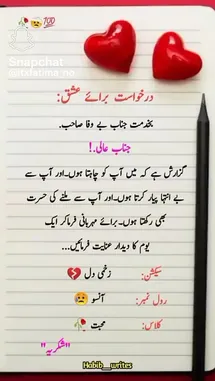 💯
Snapchat
درخواست برائے عشق:
بخدمت جناب بے وفا صاحب.
جناب عالی.!
گزارش ہے کہ میں آپ کو چاہتا ہوں۔اور آپ سے
بے انتہا پیار کرتا ہوں۔اور آپ سے ملنے کی حسرت
بھی رکھتا ہوں۔برائے مہربانی فرماکر ایک
یوم کا دیدار عنایت فرمائیں...
سیکشن: زخمی دل 💔
رول نمبر: آنسو 😢
کلاس: محبت 🥀
"شکریہ"
Habib_writes